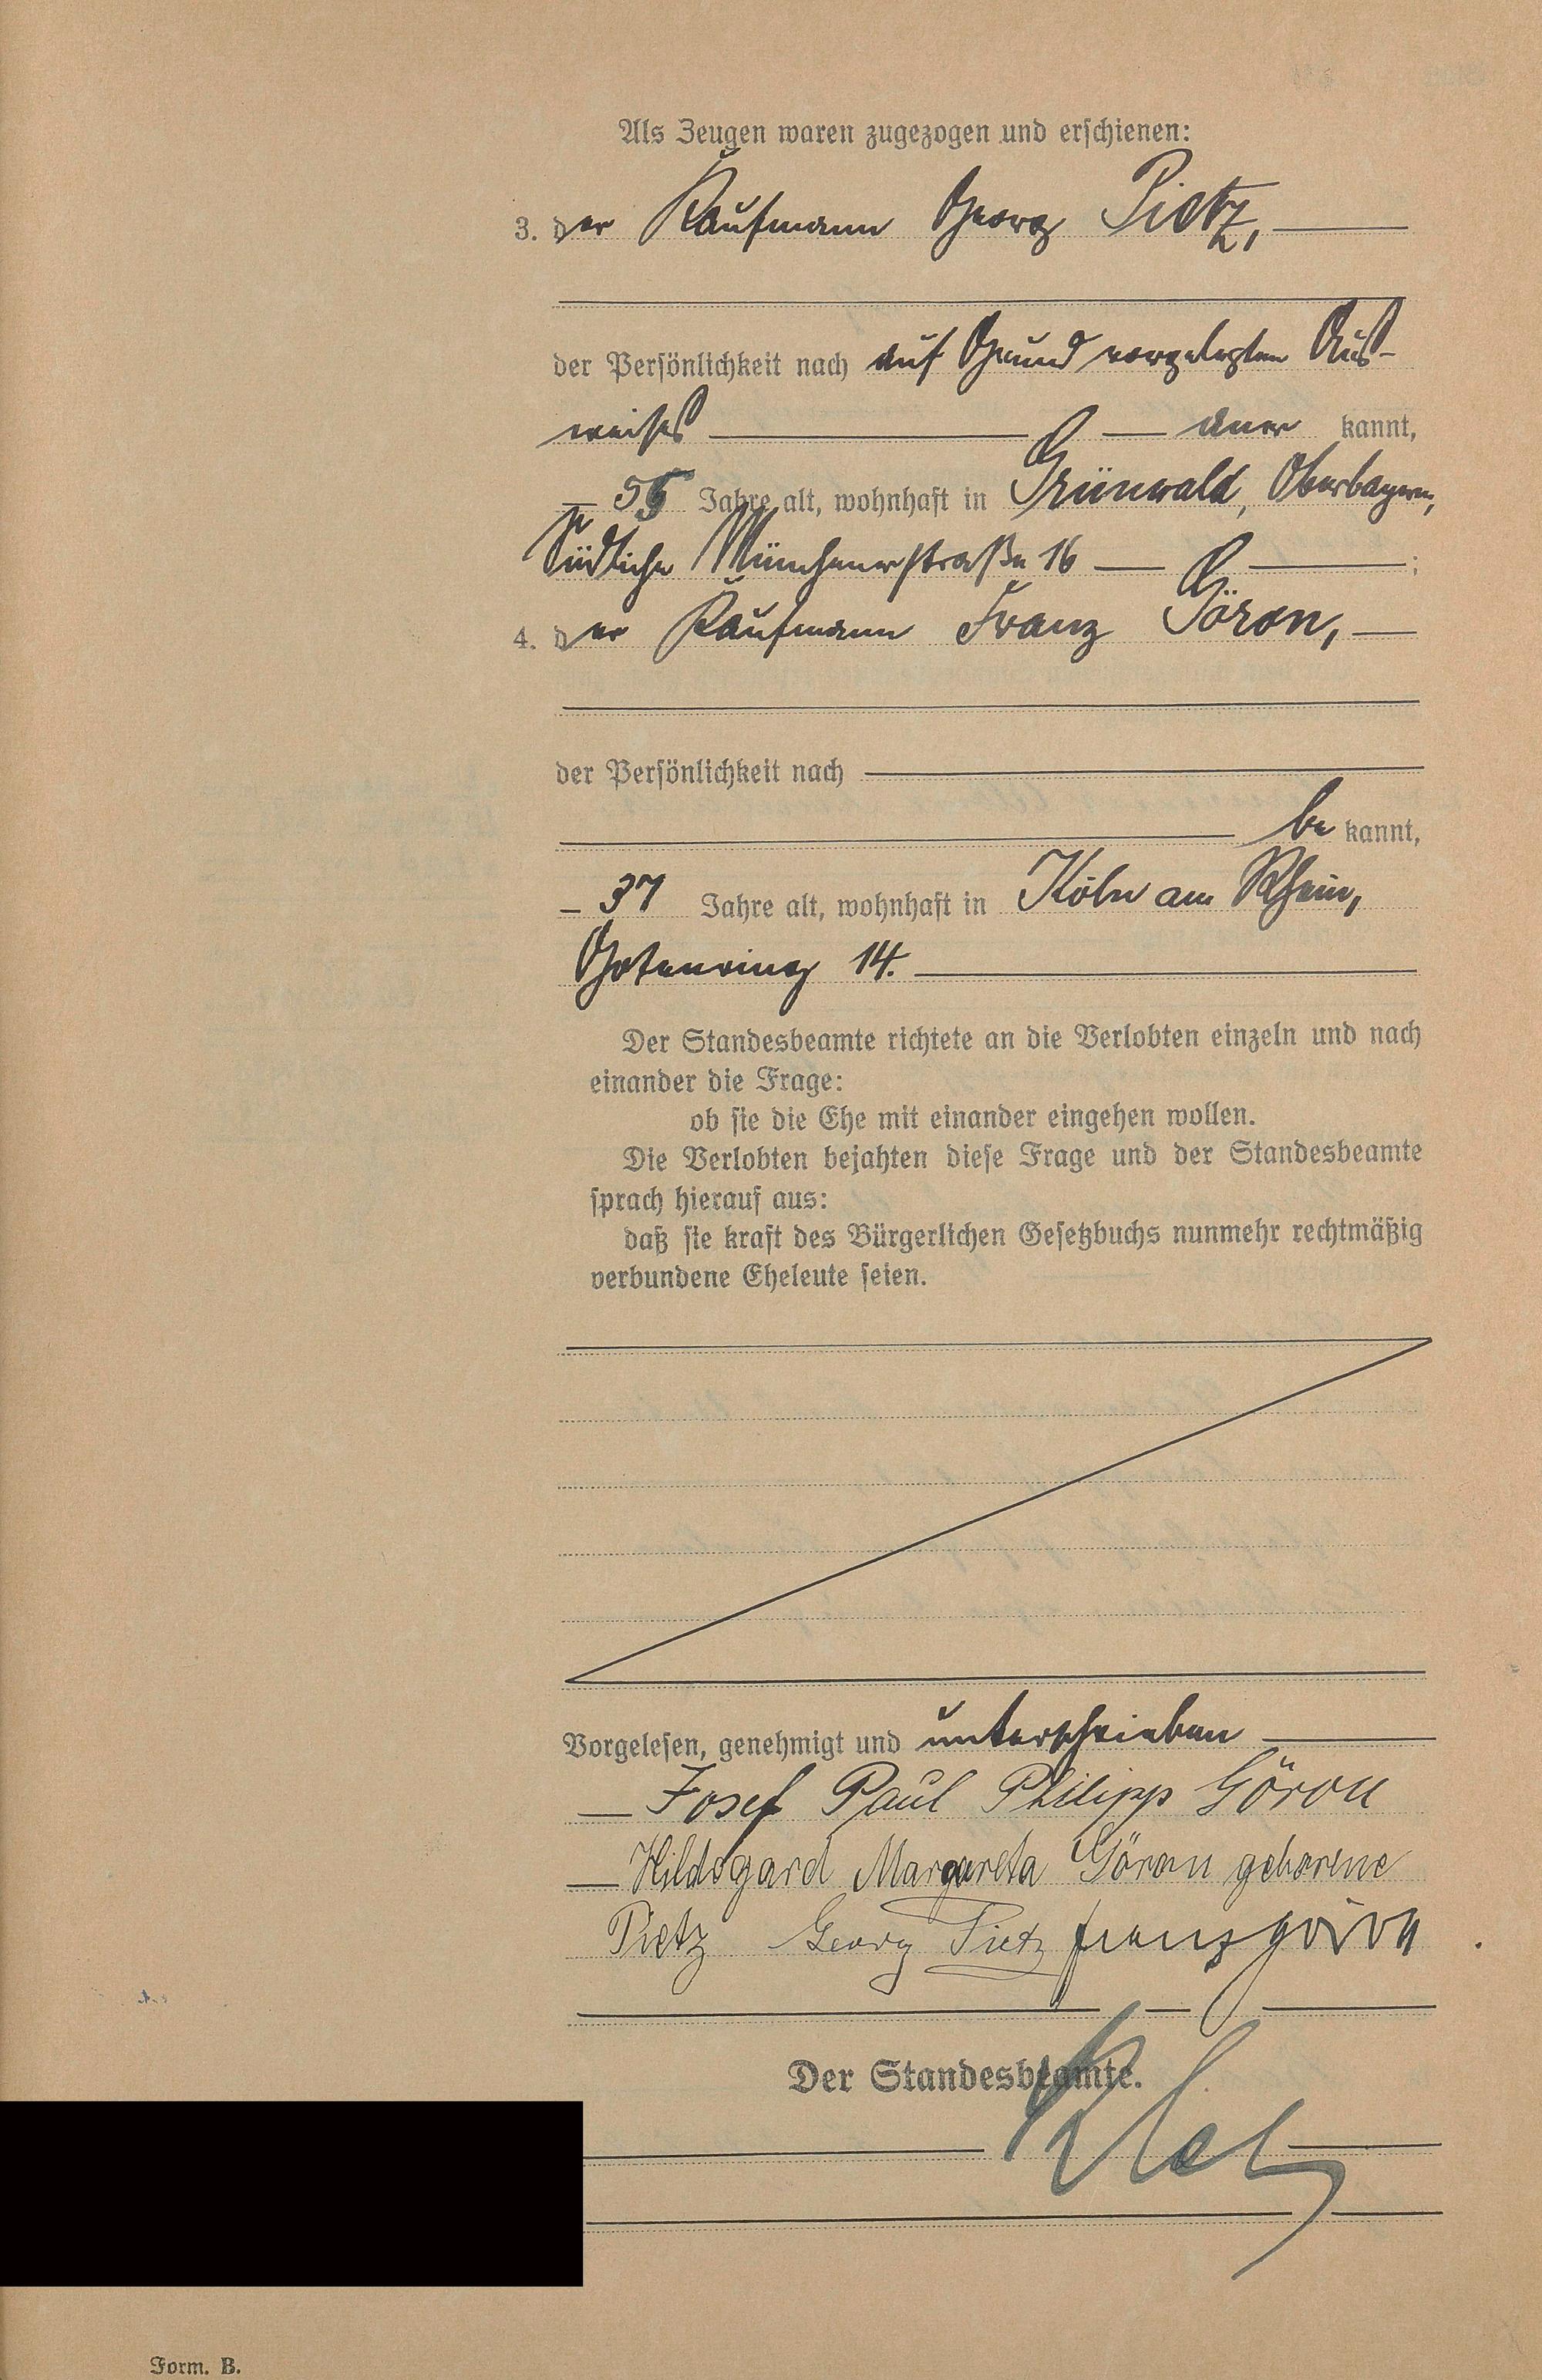 Als Zeugen waren zugezogen und erschienen:
3. der Kaufmann Georg Pietz,
der Persönlichkeit nach auf Grund vorgelegten Aus-
weises aner kannt,
55 Jahre alt, wohnhaft in Grünwald, Oberbayern,
Südliche Münchenerstraße 16 ;
4. der Kaufmann Franz Göron,
der Persönlichkeit nach
be kannt,
37 Jahre alt, wohnhaft in Köln am Rhein,
Gotenring 14.
Der Standesbeamte richtete an die Verlobten einzeln und nach
einander die Frage:
ob sie die Ehe mit einander eingehen wollen.
Die Verlobten bejahten diese Frage und der Standesbeamte
sprach hierauf aus:
daß sie kraft des Bürgerlichen Gesetzbuchs nunmehr rechtmäßig
verbundene Eheleute seien.
Vorgelesen, genehmigt und unterschrieben
Josef Paul Philipp Göron
Hildegard Margareta Göron geborene
Pietz Georg Pietz franz göron
Der Standesbeamte.
Form. B.